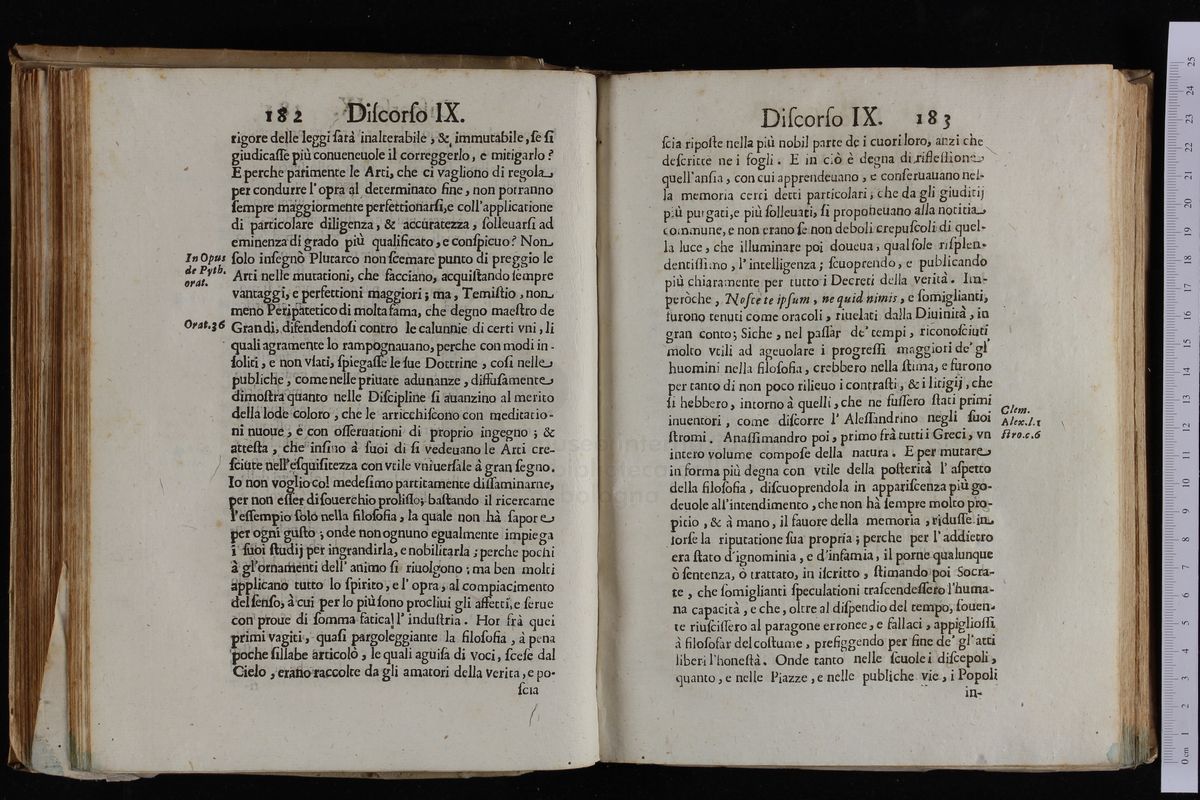 182 Diſcorſo IX.
rigore delle leggi ſarà inalterabile, & immutabile, ſe ſi
giudicaſſe più conueneuole il correggerlo, e mitigarlo?
E perche parimente le Arti, che ci vagliono di regola
per condurre l'opra al determinato fine, non potranno
ſempre maggiormente perfettionarſi, e coll'applicatione
di particolare diligenza, & accuratezza, ſolleuarſi ad
eminenza di grado più qualificato, e conſpicuo? Non
In Opus
de Pyth.
orat.
ſolo inſegnò Plutarco non ſcemare punto di preggio le
Arti nelle mutationi, che facciano, acquiſtando ſempre
vantaggi, e perfettioni maggiori; ma, Temiſtio, non
meno Peripatetico di molta fama, che degno maeſtro de
Orat.26
Grandi, difendendoſi contro le calunnie di certi vni, li
quali agramente lo rampognauano, perche con modi in-
ſoliti, e non vſati, ſpiegaſſe le ſue Dottrine, coſi nelle
publiche, come nelle priuate adunanze, diffuſamente
dimoſtra quanto nelle Diſcipline ſi auanzino al merito
della lode coloro, che le arricchiſcono con meditatio-
ni nuoue, e con oſſeruationi di proprio ingegno; &
atteſta, che inſino à ſuoi dì ſi vedeuano le Arti cre-
ſciute nell'eſquiſitezza con vtile vniuerſale à gran ſegno.
Io non voglio col medeſimo partitamente diſſaminarne,
per non eſſer diſouerchio proliſſo; baſtando il ricercarne
l'eſſempio ſolo nella filoſofia, la quale non hà ſapore
per ogni guſto; onde non ognuno egualmente impiega
i ſuoi ſtudij per ingrandirla, e nobilitarla; perche pochi
à gl'ornamenti dell'animo ſi riuolgono; ma ben molti
applicano tutto lo ſpirito, e l'opra, al compiacimento
del ſenſo, à cui per lo più ſono procliui gli affetti, e ſerue
con proue di ſomma fatica l'induſtria. Hor frà quei
primi vagiti, quaſi pargoleggiante la filoſofia, à pena
poche ſillabe articolò, le quali aguiſa di voci, ſceſe dal
Cielo, erano raccolte da gli amatori della verita, e po-
ſcia
Diſcorſo IX. 183
ſcia ripoſte nella più nobil parte de i cuori loro, anzi che
deſcritte ne i fogli. E in ciò è degna di rifleſſione
quell'anſia, con cui apprendeuano, e conſeruauano nel-
la memoria certi detti particolari, che da gli giuditij
più purgati, e più ſolleuati, ſi proponeuano alla notitia
commune, e non erano ſe non deboli crepuſcoli di quel-
la luce, che illuminare poi doueua, qual ſole riſplen-
dentiſſimo, l'intelligenza; ſcuoprendo, e publicando
più chiaramente per tutto i Decreti della verità. Im-
peròche, Noſce te ipſum, ne quid nimis, e ſomiglianti,
furono tenuti come oracoli, riuelati dalla Diuinità, in
gran conto; Siche, nel paſſar de' tempi, riconoſciuti
molto vtili ad ageuolare i progreſſi maggiori de' gl'
huomini nella filoſofia, crebbero nella ſtima, e furono
per tanto di non poco rilieuo i contraſti, & i litigij, che
ſi hebbero, intorno à quelli, che ne fuſſero ſtati primi
inuentori, come diſcorre l'Aleſſandrino negli ſuoi
Clem.
Alex.l.1
ſtro.c.6
ſtromi. Anaſſimandro poi, primo frà tutti i Greci, vn
intero volume compoſe della natura. E per mutare
in forma più degna con vtile della poſterità l'aſpetto
della filoſofia, diſcuoprendola in appariſcenza più go-
deuole all'intendimento, che non hà ſempre molto pro-
picio, & à mano, il fauore della memoria, riduſſe in
forſe la riputatione ſua propria; perche per l'addietro
era ſtato d'ignominia, e d'infamia, il porne qualunque
ò ſentenza, ò trattato, in iſcritto, ſtimando poi Socra-
te, che ſomiglianti ſpeculationi traſcendeſſero l'huma-
na capacità, e che, oltre al diſpendio del tempo, ſouen-
te riuſciſſero al paragone erronee, e fallaci, appiglioſſi
à filoſofar del coſtume, prefiggendo per fine de' gl'atti
liberi l'honeſtà. Onde tanto nelle ſcuole i diſcepoli,
quanto, e nelle Piazze, e nelle publiche vie, i Popoli
in-